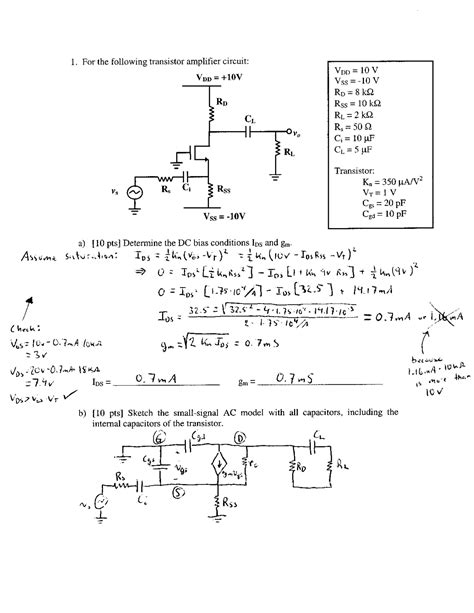 1. For the following transistor amplifier circuit:
V_DD = +10V
R_D
C_L
v_o
R_L
v_s
R_s
C_i
R_SS
V_SS = -10V
V_DD = 10 V
V_SS = -10 V
R_D = 8 kΩ
R_SS = 10 kΩ
R_L = 2 kΩ
R_s = 50 Ω
C_i = 10 μF
C_L = 5 μF
Transistor:
K_n = 350 μA/V²
V_T = 1 V
C_gs = 20 pF
C_gd = 10 pF
a) [10 pts] Determine the DC bias conditions I_DS and g_m.
Assume saturation: I_DS = ½ K_n (V_GS - V_T)² = ½ K_n (10V - I_DS R_SS - V_T)²
⇒ 0 = I_DS² [½ K_n R_SS²] - I_DS [1 + K_n 9V R_SS] + ½ K_n (9V)²
0 = I_DS² [1.75·10⁴/A] - I_DS [32.5] + 14.17mA
I_DS = (32.5 ± √(32.5² - 4·1.75·10⁴·14.17·10⁻³)) / (2·1.75·10⁴) = 0.7mA or 1.16mA
g_m = √(2 K_n I_DS) = 0.7mS
because
1.16mA·10kΩ
is more than
10V
Check:
V_GS = 10V - 0.7mA 10kΩ
= 3V
V_DS = 20V - 0.7mA 18kΩ
= 7.4V
V_DS > V_GS - V_T ✓
I_DS = 0.7mA
g_m = 0.7mS
b) [10 pts] Sketch the small-signal AC model with all capacitors, including the
internal capacitors of the transistor.
G
C_gd
D
C_L
C_gs
V_gs
g_m V_gs
r_o
R_D
R_L
R_s
C_i
S
v_s
R_SS